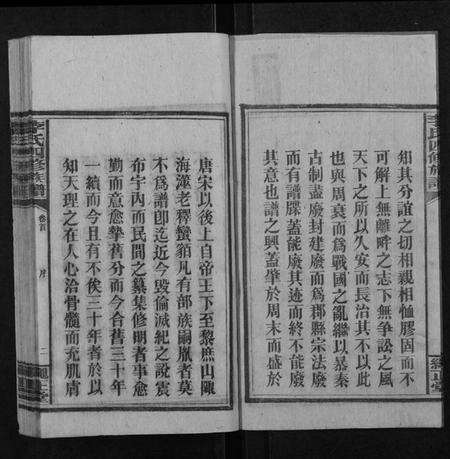 李氏四修族譜
知其分誼之切相親相恤膠固而不
可解上無離畔之志下無爭訟之風
天下之所以久安而長治其不以此
也與周衰而為戰國之亂繼以暴秦
古制盡廢封建廢而為郡縣宗法廢
而有譜牒蓋能廢其迹而終不能廢
其意也譜之興蓋肇於周末而盛於
唐宋以後上自帝王下至黎庶山陬
海澨老釋蠻貊凡有部族嗣胤者莫
不為譜卽迄近今毀倫滅紀之說震
布宇內而民間之纂集修明者事愈
勤而意愈摯舊分而今合舊三十年
一續而今且有不俟三十年者於以
知天理之在人心洽骨髓而充肌膚
李氏四修族譜
卷首
序
二